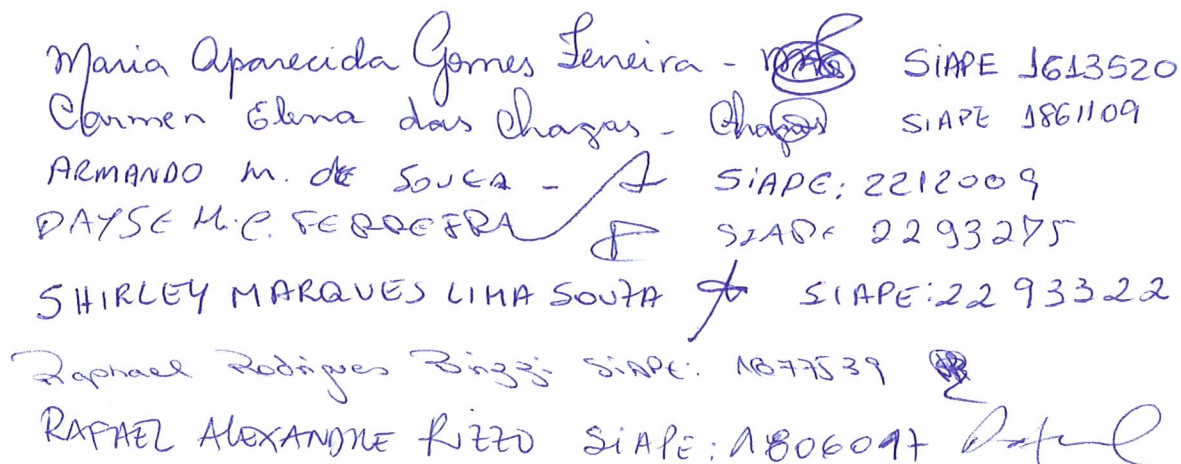 Maria Aparecida Gomes Ferreira - SiAPE 1613520
Carmen Elena das Chagas - Chagas SIAPE 1861109
ARMANDO M. de SOUZA - SiAPE: 2212009
DAYSE M.C. FERREIRA SIAPE 2293275
SHIRLEY MARQUES LIMA SOUZA SIAPE: 2293322
Raphael Rodrigues Brizzi SiAPE: 1877539
RAFAEL ALEXANDRE RIZZO SiAPE: 1806097